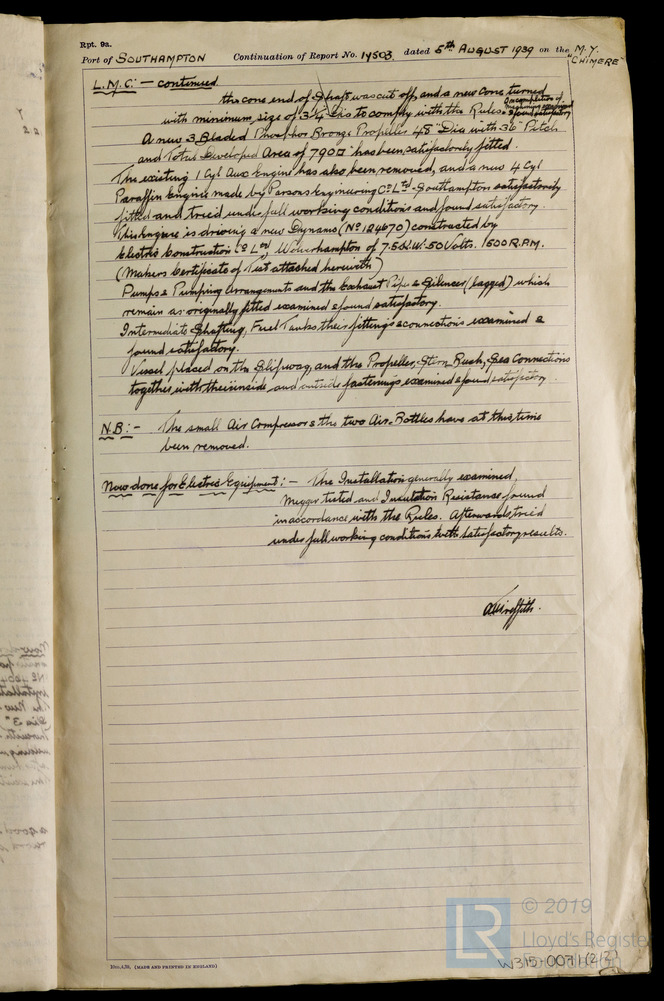 Rpt. 9a.
Port of SOUTHAMPTON Continuation of Report No. 14503 dated 5th AUGUST 1939 on the M.Y. "CHIMERE"
L.M.C: - continued
the cone end of shaft was cut off, and a new cone turned
with minimum size of 3¼ Dia to comply with the Rules. & found satisfactory
A new 3 Bladed Phosphor Bronze Propeller 48" Dia with 36" Pitch
and Total Developed Area of 790□" has been satisfactorily fitted.
The existing 1 Cyl Aux Engine has also been removed, and a new 4 Cyl
Paraffin Engine made by Parsons Engineering Co Ltd Southampton satisfactorily
fitted and tried under full working conditions and found satisfactory.
This engine is driving a new Dynamo (No 124670) constructed by
Electric Construction Co Ltd, Wolverhampton of 7.5 K.W. 50 Volts. 1500 R.P.M.
(Makers Certificate of Test attached herewith)
Pumps & Pumping Arrangements and the Exhaust Pipe & Silencer (lagged) which
remain as originally fitted examined & found satisfactory.
Intermediate Shafting, Fuel Tanks, their fittings & connections examined &
found satisfactory.
Vessel placed on the Slipway, and the Propeller, Stern Bush, Sea Connections
together with their inside and outside fastenings examined & found satisfactory.
N.B:- The small Air Compressor & the two Air-Bottles have at this time
been removed.
Now done for Electric Equipment: - The Installation generally examined,
Megger tested and Insulation Resistance found
in accordance with the Rules. Afterwards tried
under full working conditions with satisfactory results.
Griffith.
(MADE AND PRINTED IN ENGLAND)
LR © 2019
Lloyd's Register
Foundation
W315-0071 (2/2)